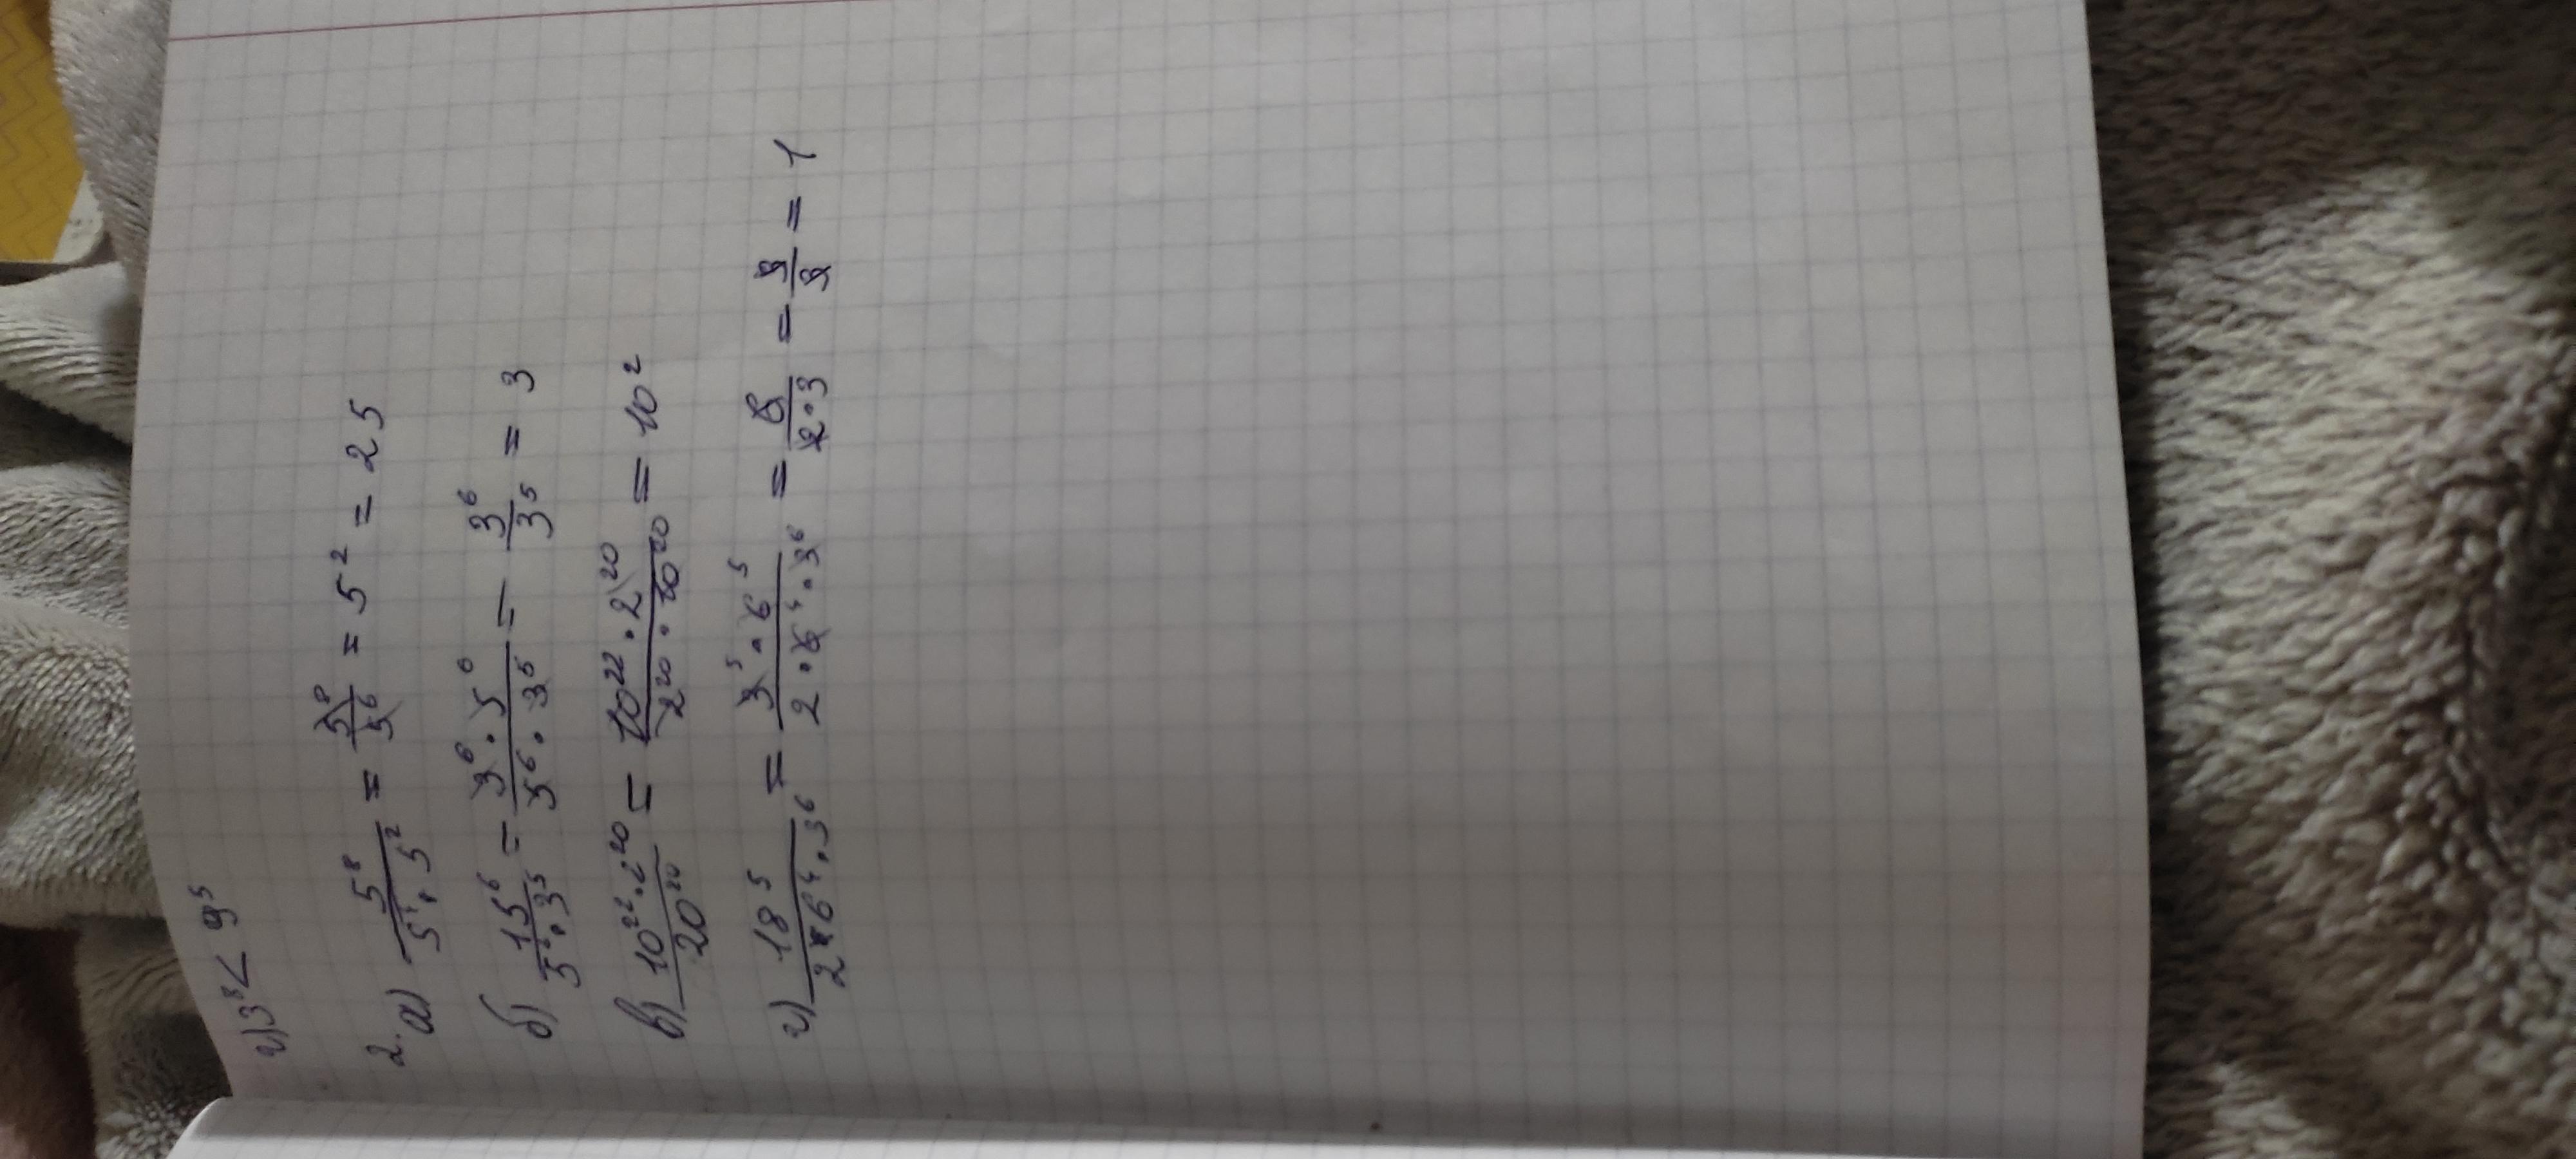 г) 3⁸ < 9⁵
2.
а) 5⁸/(5⁴ · 5²) = 5⁸/5⁶ = 5² = 25
б) 15⁶/(5⁶ · 3⁵) = (3⁶ · 5⁶)/(5⁶ · 3⁵) = 3⁶/3⁵ = 3
в) (10²² · 2²⁰)/20²⁰ = (10²² · 2²⁰)/(2²⁰ · 10²⁰) = 10²
г) 18⁵/(2 · 6⁴ · 3⁶) = (3⁵ · 6⁵)/(2 · 6⁴ · 3⁶) = 6/(2 · 3) = 3/3 = 1